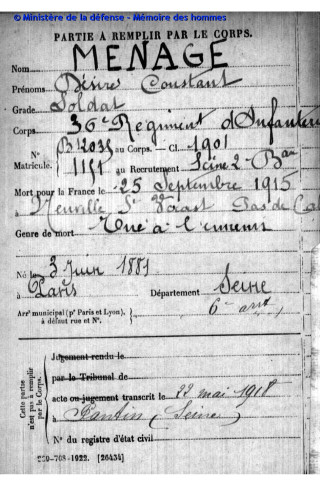 © Ministère de la défense - Mémoire des hommes
PARTIE A REMPLIR PAR LE CORPS.
MENAGE
Nom
Prénoms Désiré Constant
Grade Soldat
Corps 36e Régiment d'Infanterie
N° B12035 au Corps. — Cl. 1901
Matricule. 1151 au Recrutement Seine 2e Bau
Mort pour la France le 25 Septembre 1915
à Neuville St Vaast Pas de Cal
Genre de mort Tué à l'ennemi
Né le 3 Juin 1881
à Paris Département Seine
Arrt municipal (pr Paris et Lyon), à défaut rue et N°. 6e arrt
Cette partie n'est pas à remplir par le Corps.
Jugement rendu le
par le Tribunal de
acte ou jugement transcrit le 22 mai 1918
à Pantin (Seine)
N° du registre d'état civil
-708-1922. [26434]